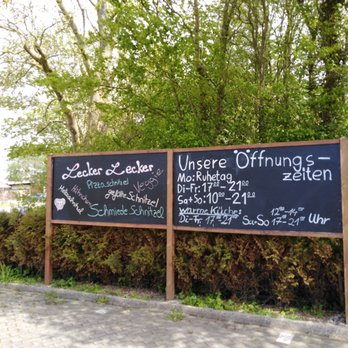 Lecker Lecker
Pizzaschnitzel
Veggie
Jägerschnitzel
Schmiede Schnitzel
Unsere Öffnungs-
zeiten
Mo: Ruhetag
Di-Fr: 17⁰⁰-21⁰⁰
Sa+So: 10⁰⁰-21⁰⁰
warme Küche:
Di-Fr, 17⁰⁰-21⁰⁰ Sa+So 12⁰⁰-14⁰⁰
17⁰⁰-21⁰⁰ Uhr